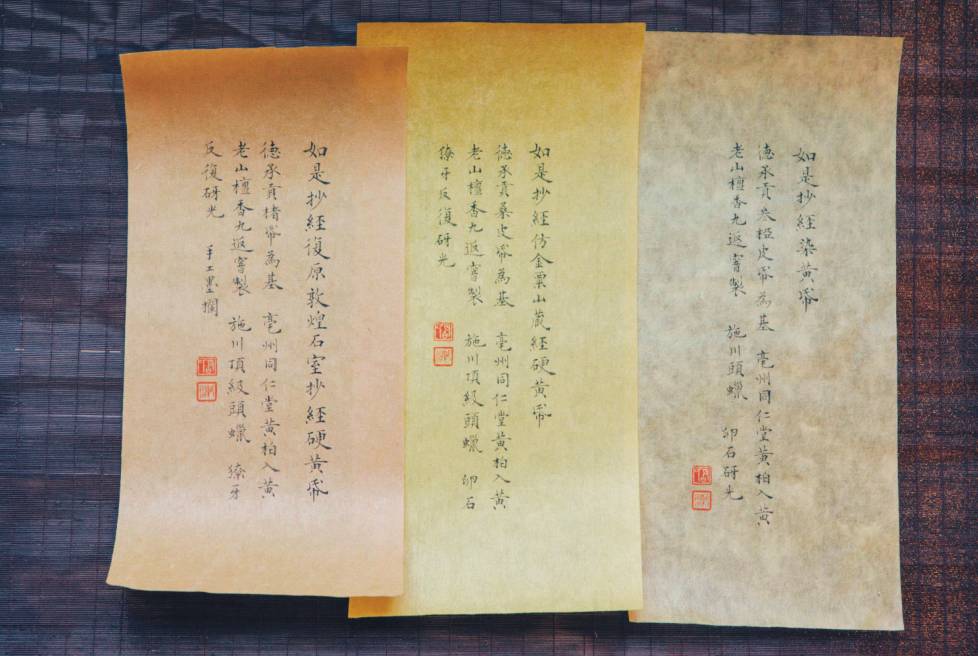 如是抄經染黃帋
德承貢叁椏皮帋為基 亳州同仁堂黃柏入黃
老山檀香九返窨製 施川頭蠟 卵石砑光
如是抄經仿金粟山藏經硬黃帋
德承貢桑皮帋為基 亳州同仁堂黃柏入黃
老山檀香九返窨製 施川頂級頭蠟 卵石
獠牙反復砑光
如是抄經復原敦煌石室抄經硬黃帋
德承貢楮帋為基 亳州同仁堂黃柏入黃
老山檀香九返窨製 施川頂級頭蠟 獠牙
反復砑光 手工墨欄